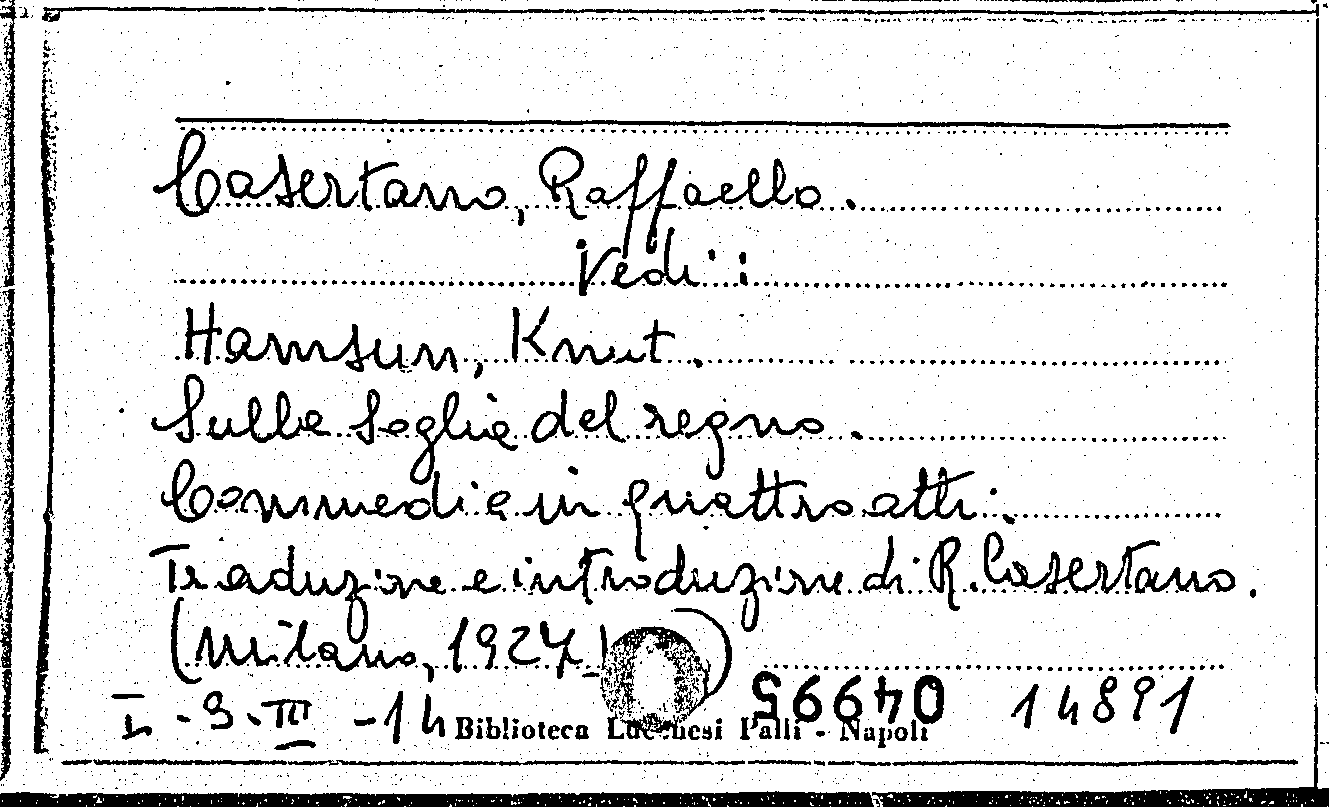 Casertano, Raffaello.
Vedi:
Hamsun, Knut.
Sulle soglie del regno.
Commedia in quattro atti.
Traduzione e introduzione di R. Casertano.
(Milano, 1927)
I - 9 - III - 14
04995
14891
Biblioteca Lucchesi Palli - Napoli